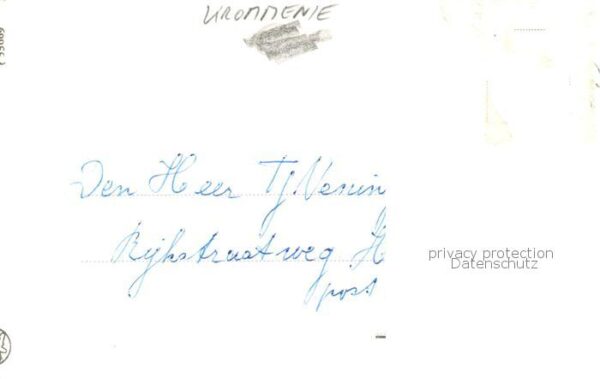 KROMMENIE
Den Heer Tj. Venin
Rijkstraatweg H
post
privacy protection
Datenschutz